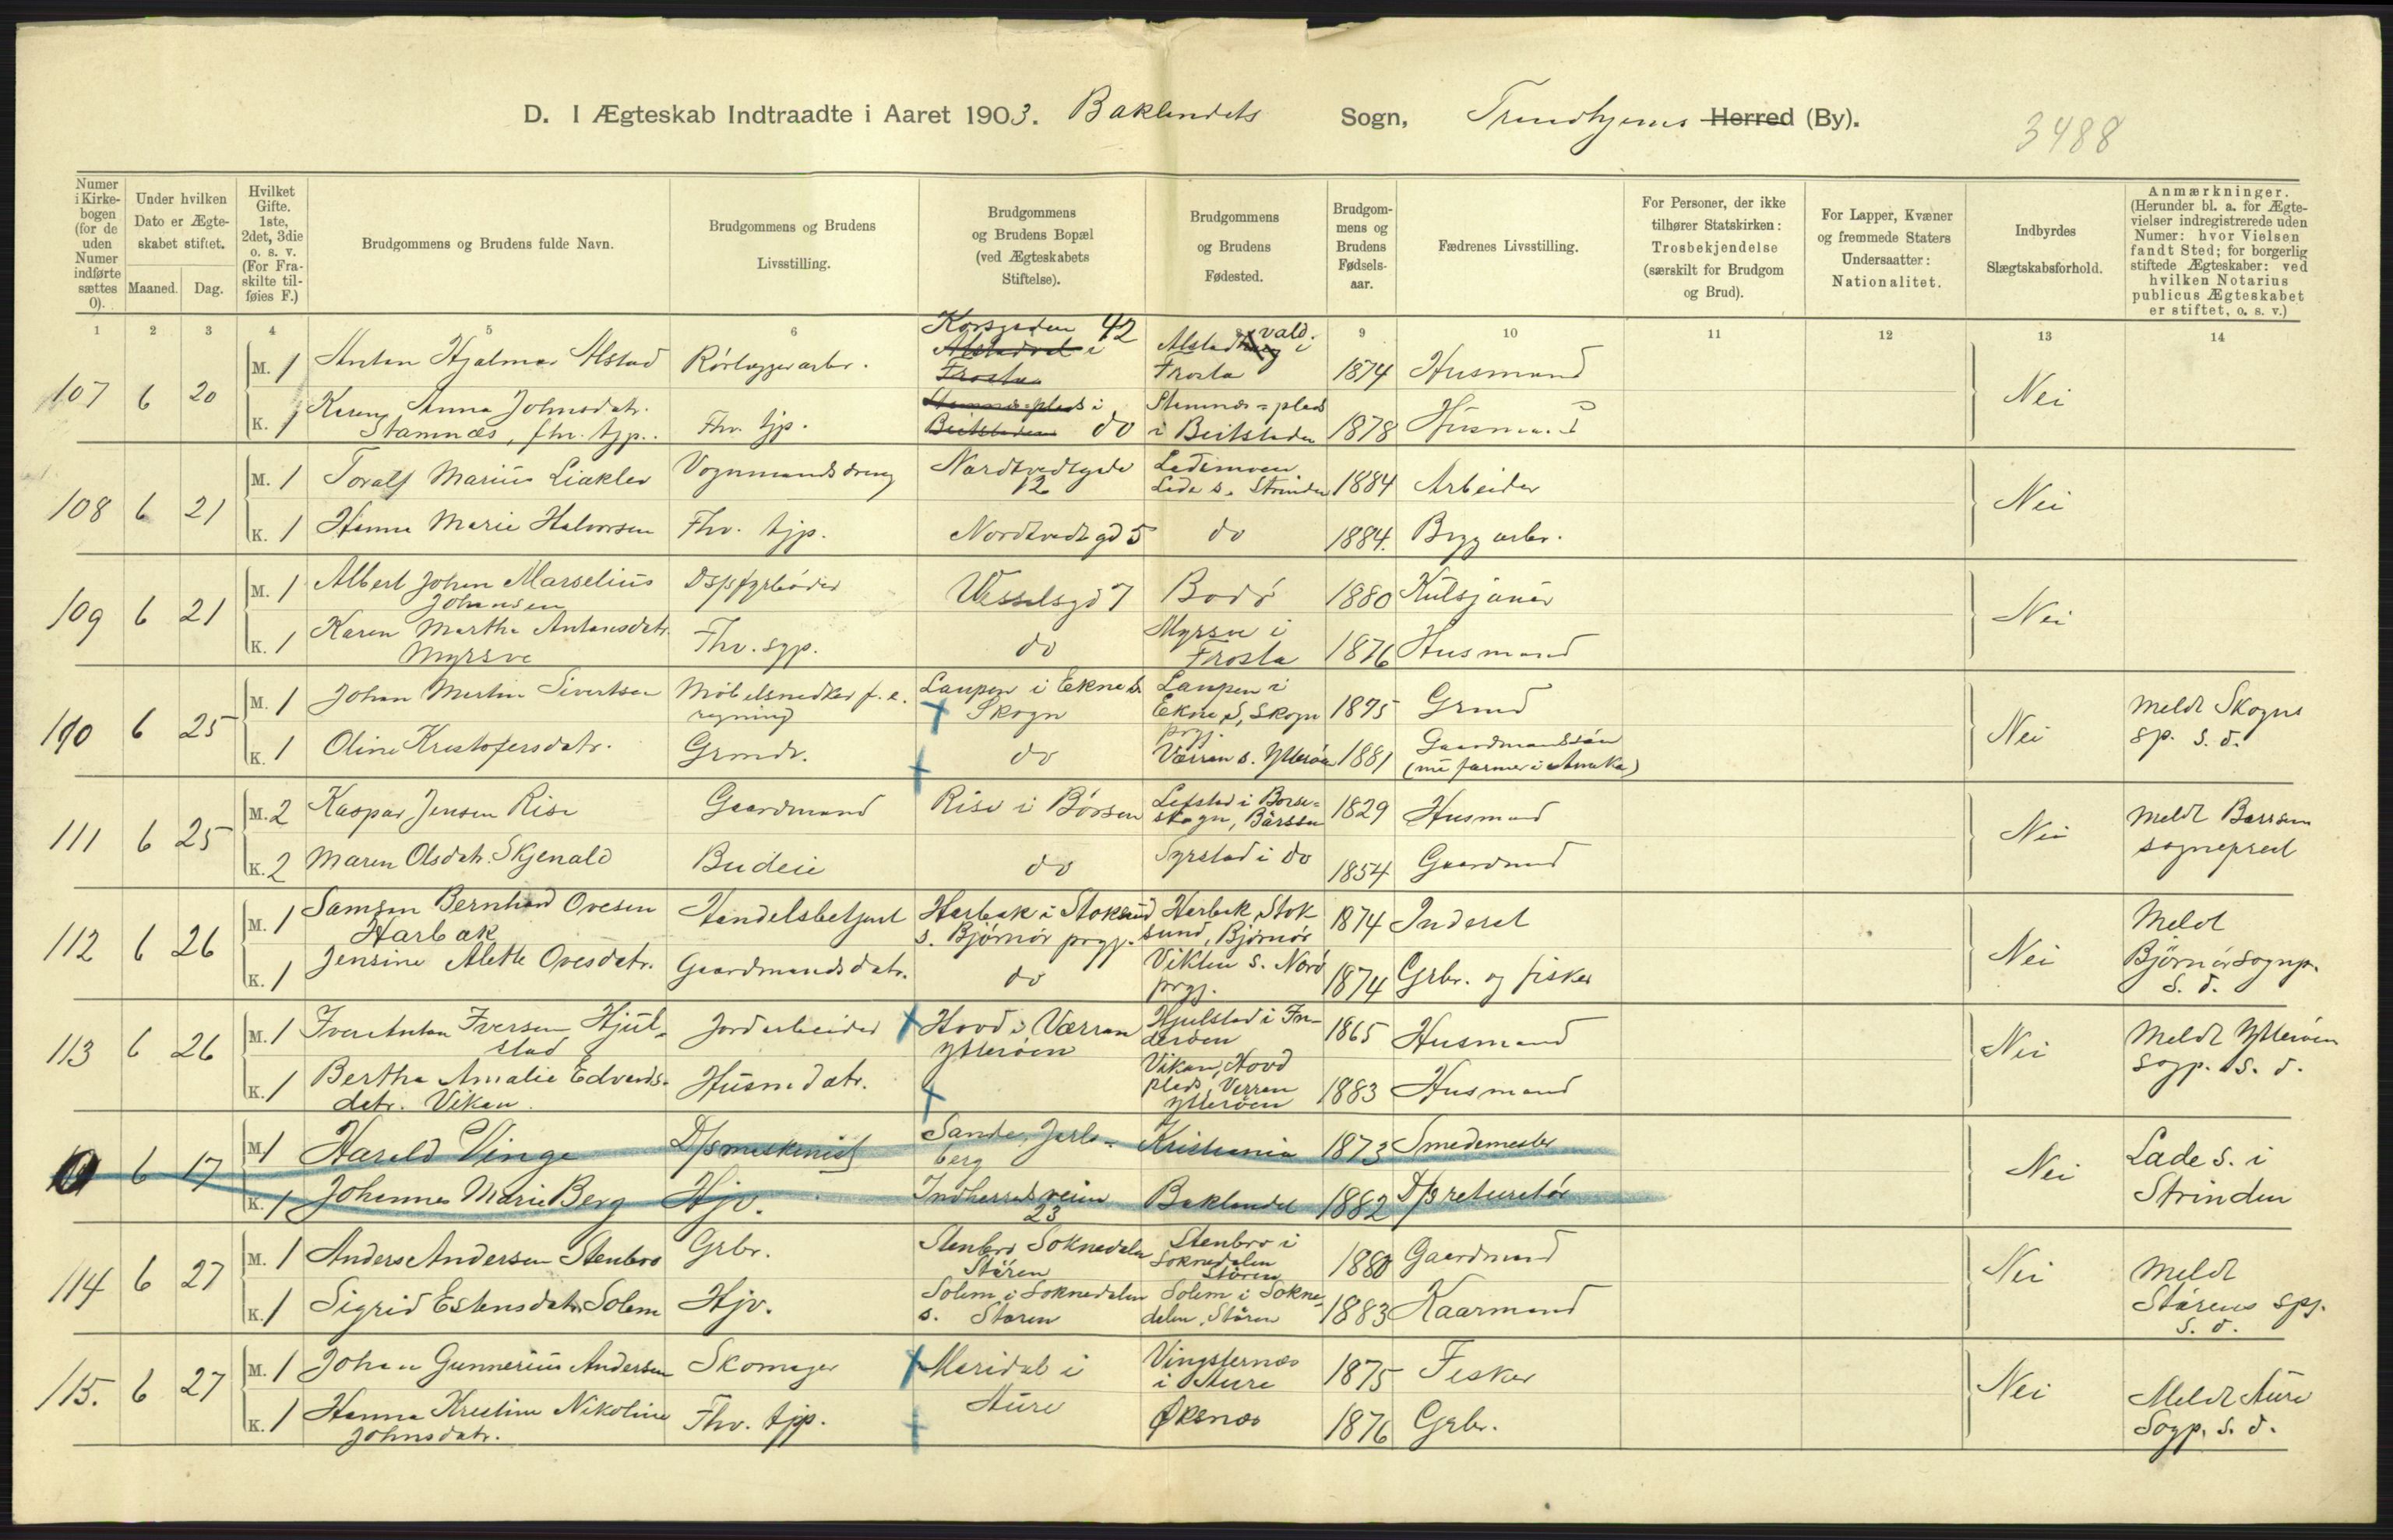 D. I Ægteskab Indtraadte i Aaret 1903. Baklandets Sogn, Trondhjems Herred (By).
3488
Numer i Kirkebogen (for de uden Numer indførte sættes 0).
Under hvilken Dato er Ægteskabet stiftet.
Maaned. Dag.
Hvilket Gifte. 1ste, 2det, 3die o. s. v. (For Fraskilte tilføies F.)
Brudgommens og Brudens fulde Navn.
Brudgommens og Brudens Livsstilling.
Brudgommens og Brudens Bopæl (ved Ægteskabets Stiftelse).
Brudgommens og Brudens Fødested.
Brudgommens og Brudens Fødselsaar.
Fædrenes Livsstilling.
For Personer, der ikke tilhører Statskirken: Trosbekjendelse (særskilt for Brudgom og Brud).
For Lapper, Kvæner og fremmede Staters Undersaatter: Nationalitet.
Indbyrdes Slægtskabsforhold.
Anmærkninger. (Herunder bl. a. for Ægtevielser indregistrerede uden Numer: hvor Vielsen fandt Sted; for borgerlig stiftede Ægteskaber: ved hvilken Notarius publicus Ægteskabet er stiftet, o. s. v.)
1 2 3 4 5 6 9 10 11 12 13 14
107 6 20 M. 1 Anton Hjalmar Alstad Rörlæggerarbr. Korsgaden 42 Alstadvald i Frosta 1874 Husmand Nei
K. 1 Karen Anna Johnsdatr. Stamnæs, fhv. tjp. Fhv. tjp. do Stamnæs=plads i Beitstaden 1878 Husmand
108 6 21 M. 1 Toralf Marius Liaklev Vognmandsdreng Nordtvedtgade 12 Ladeimoen Lade s. Strinden 1884 Arbeider Nei
K. 1 Hanna Marie Halvorsen Fhv. tjp. Nordtvedtgd 5 do 1884. Brygarbr.
109 6 21 M. 1 Albert Johan Marselius Johansen Dspfyrbøder Wesselsgd 7 Bodø 1880 Kulsjauer Nei
K. 1 Karen Martha Antonsdatr. Myrsve Fhv. syp. do Myrsve i Frosta 1876 Husmand
110 6 25 M. 1 Johan Martin Sivertsen Möbelsnedker f. e. regning Laupen i Ekne s. Skogn Laupen i Ekne S, Skogn prgj. 1875 Grmd Nei Meldt Skogns sp. s. d.
K. 1 Oline Kristofersdatr. Grmdr. do Værran s. Ytterøen 1881 Gaardmandssøn (nu farmer i Amka)
111 6 25 M. 2 Kaspar Jensen Rise Gaardmand Rise i Børsen Lefstad i Børseskogn, Børssen 1829 Husmand Nei Meldt Børssen sogneprest
K. 2 Maren Olsdatr. Skjenald Budeie do Syrstad i do 1854 Gaardmd
112 6 26 M. 1 Samson Bernhard Ovesen Harbak Handelsbetjent Harbak i Stoksund s. Bjørnør prgj. Harbak, Stoksund, Bjørnør 1874 Inderst Nei Meldt Björnör sognp. s. d.
K. 1 Jensine Alette Ovesdatr. Gaardmandsdatr. do Vikten s. Nærö prgj. 1874 Grbr. og fisker
113 6 26 M. 1 Iver Anton Iversen Hjulstad Jordarbeider Hovd i Værran Ytterøen Hjulstad i Inderøen 1865 Husmand Nei Meldt Ytterøen sogp. s. d.
K. 1 Bertha Amalie Edvardsdatr. Vikan Husmdatr. Vikan, Hovd plads, Verran Ytterøen 1883 Husmand
0 6 17 M. 1 Harald Vinge D/smaskinist Sande, Jarlsberg Kristiania 1873 Smedemester Nei Lade s. i Strinden
K. 1 Johanne Marie Berg Hjv. Indherredsveien 23 Baklandet 1882
114 6 27 M. 1 Anders Andersen Stenbro Grbr. Stenbro Soknedalen Stören Stenbro i Soknedalen Stören 1880 Gaardmand Nei Meldt Störens spj. s. d.
K. 1 Sigrid Estensdatr. Solem Hjv. Solem i Soknedalen s. Støren Solem i Soknedalen, Støren 1883 Kaarmand
115. 6 27 M. 1 Johan Gunnerius Andersen Skomager Maridal i Aure Vingsternæs i Aure 1875 Fisker Nei Meldt Aure Sogp. s. d.
K. 1 Hanna Kristine Nikoline Johnsdatr. Fhv. tjp. Øksnæs 1876 Grbr.